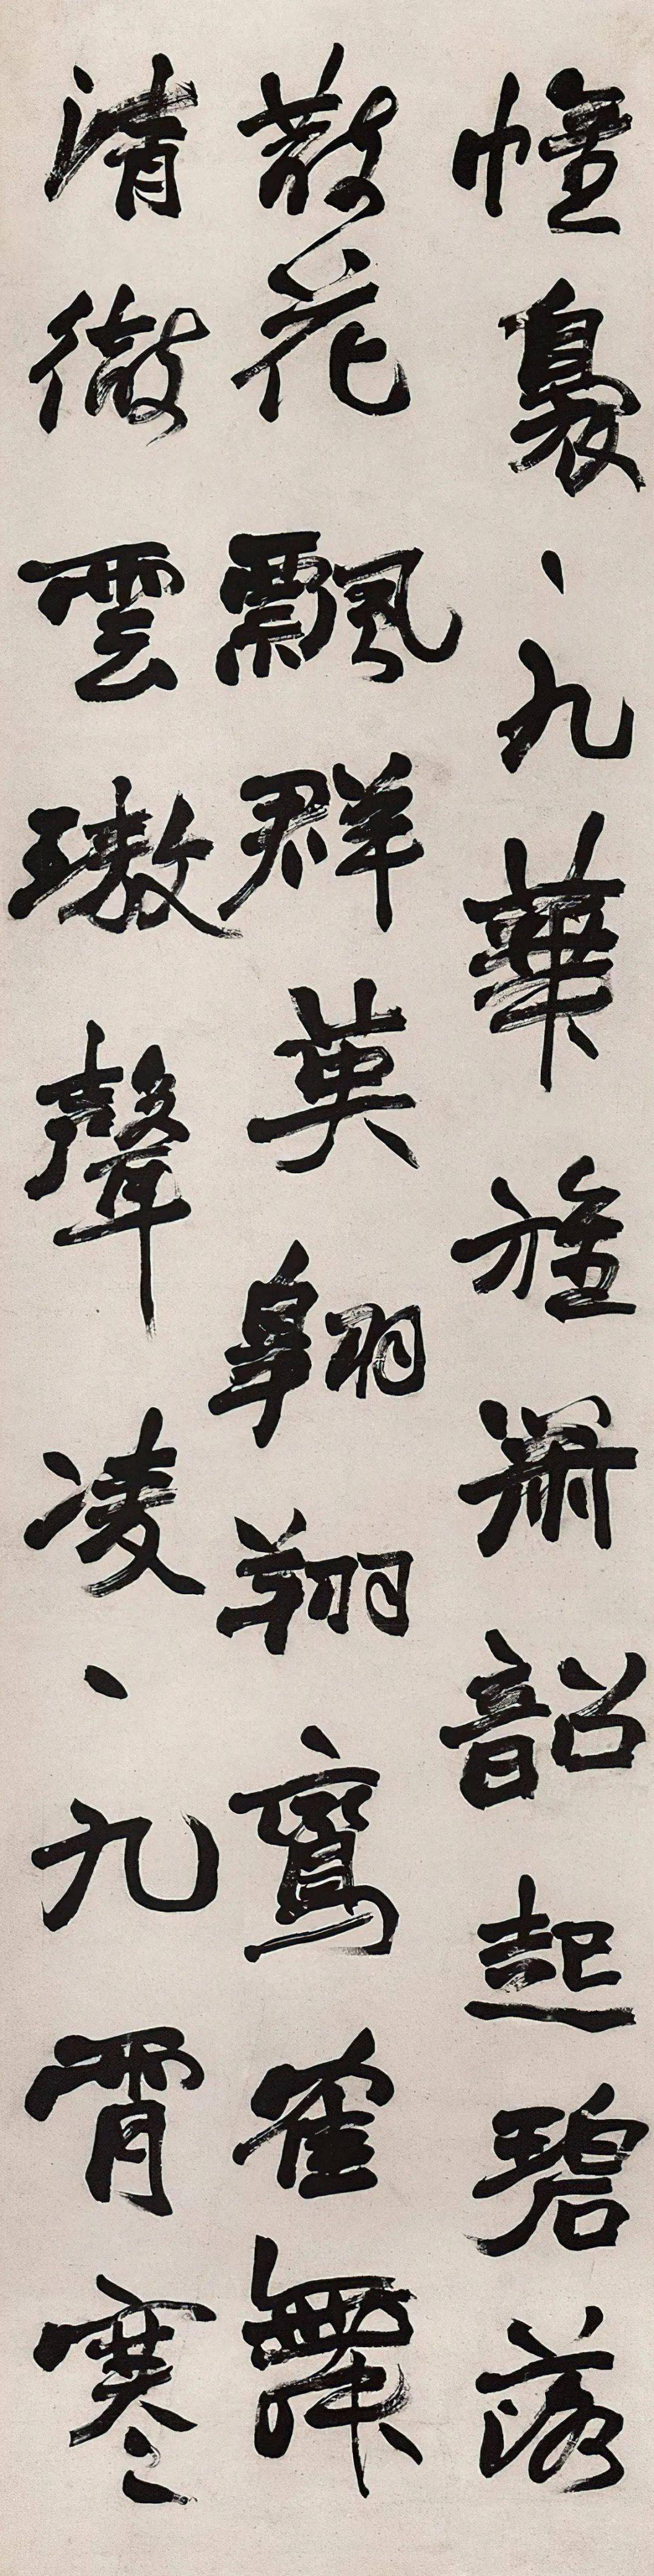 幢裊丶九華旌簫韶起碧落
散花飄群英翱翔鸞雀舞
清徹雲璈聲凌丶九霄寒